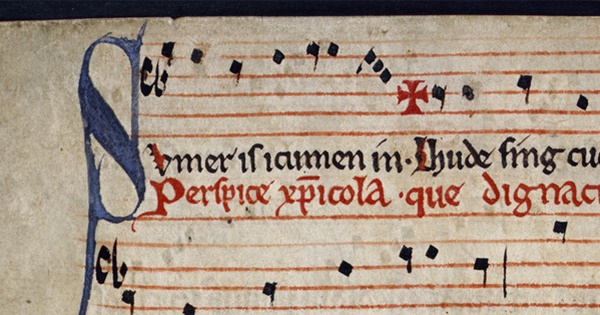 Svmer is icumen in· Lhude sing cu
Perspice xp̅icola · que dignaci